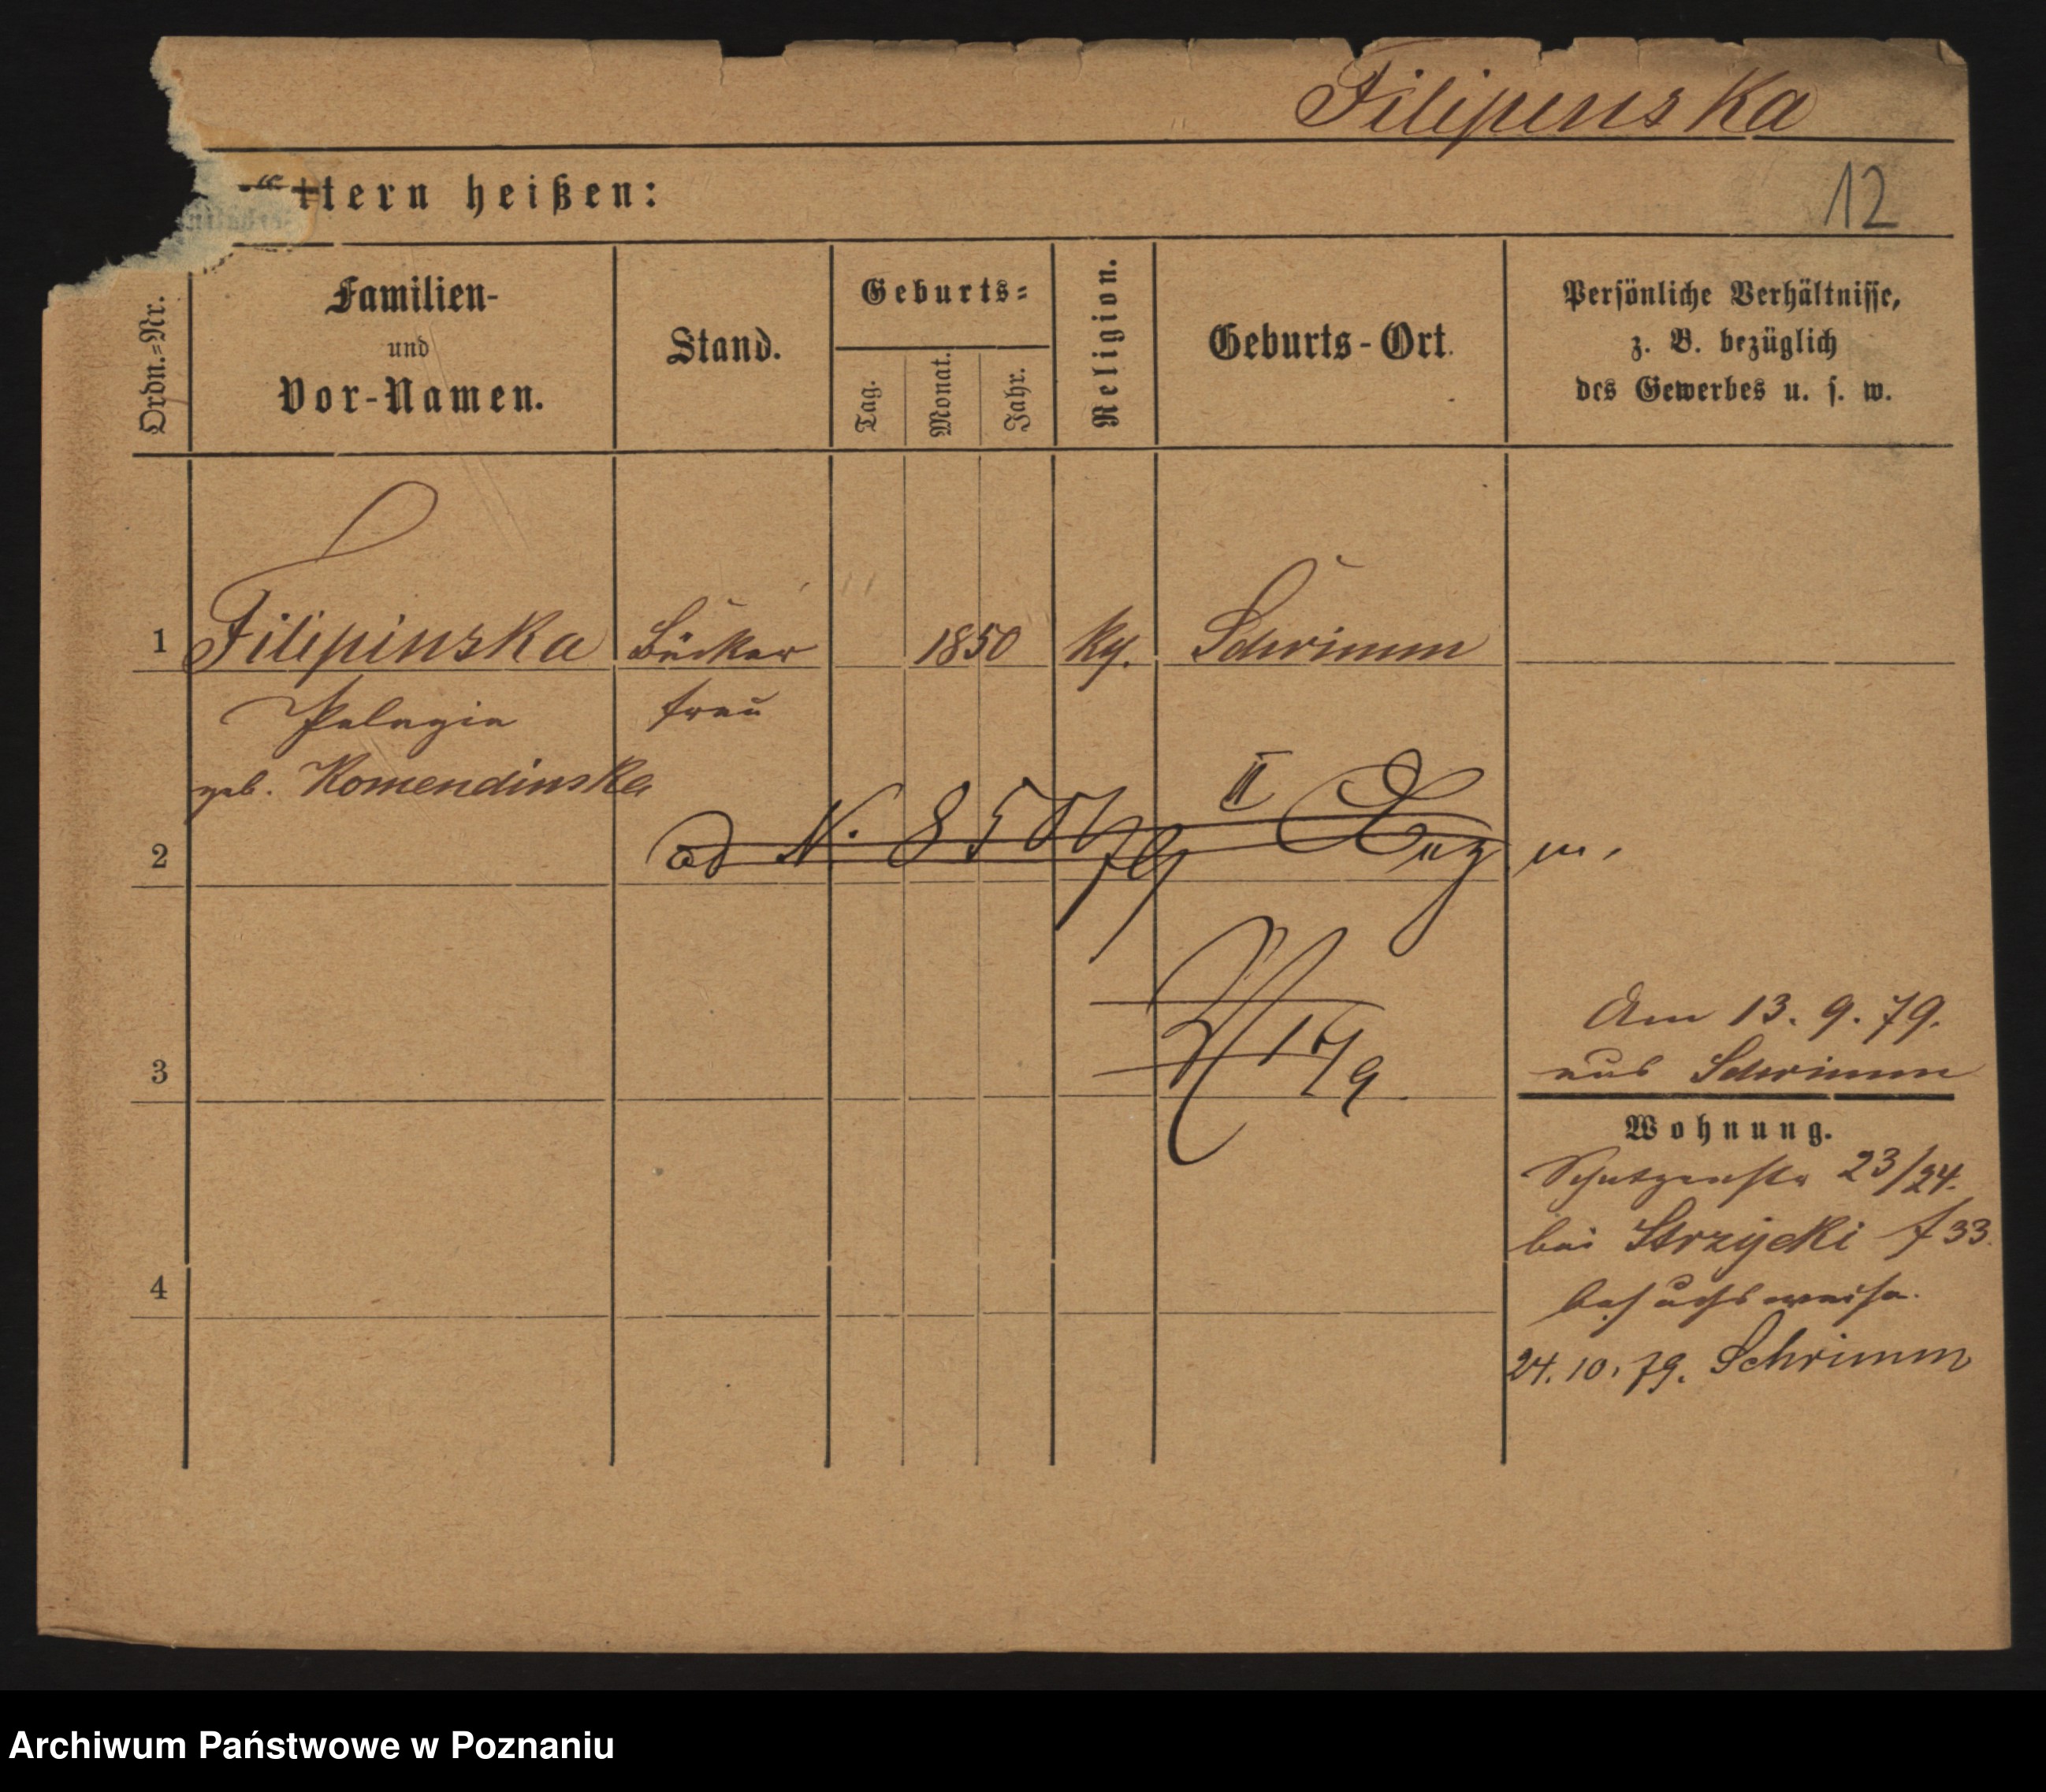 Filipinska
ttern heißen:
12
Ordn.=Nr.
Familien-
und
Vor-Namen.
Stand.
Geburts=
Tag.
Monat.
Jahr.
Religion.
Geburts-Ort.
Persönliche Verhältnisse,
z. B. bezüglich
des Gewerbes u. s. w.
1 Filipinska Bäcker 1850 kg. Schrimm
Pelagia frau
geb. Komendinska
ad N. 850/79 II
2
Am 13. 9. 79.
aus Schrimm
3
Wohnung.
Schützenstr 23/24.
bei Strzycki f 33.
besuchsweise.
4
24. 10. 79. Schrimm
Archiwum Państwowe w Poznaniu